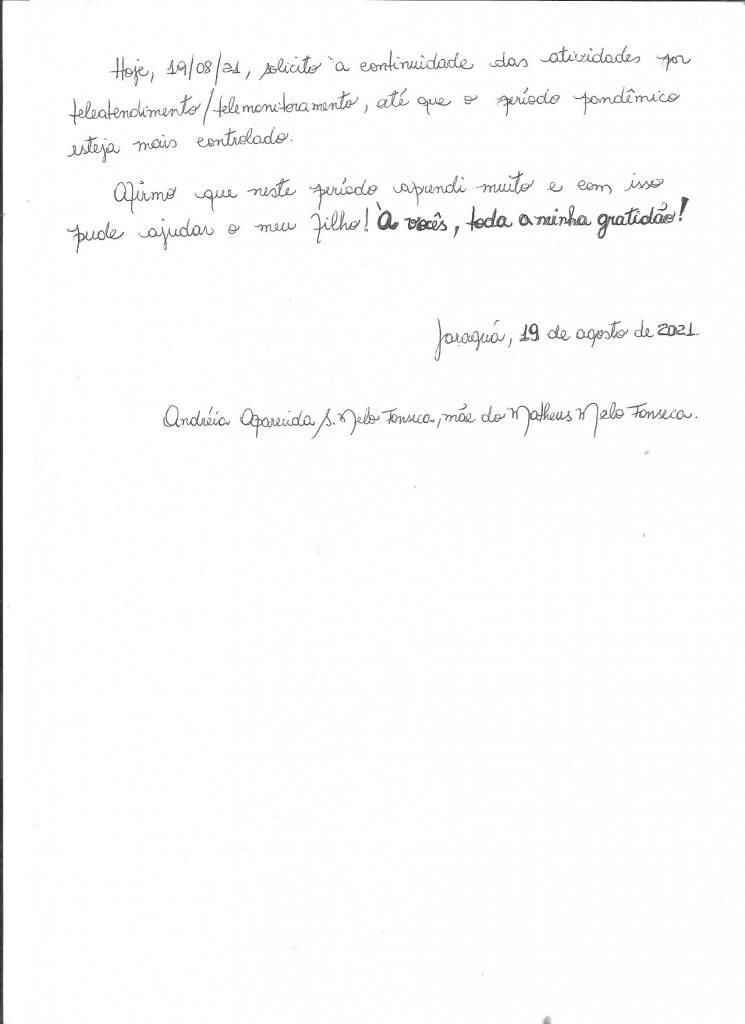 Hoje, 19/08/21, solicito à continuidade das atividades por
teleatendimento/telemonitoramento, até que o período pandêmico
esteja mais controlado.
Afirmo que neste período aprendi muito e com isso
pude ajudar o meu filho! À vocês, toda a minha gratidão!
Jaraguá, 19 de agosto de 2021.
Andréia Aparecida S. Melo Fonseca, mãe do Matheus Melo Fonseca.